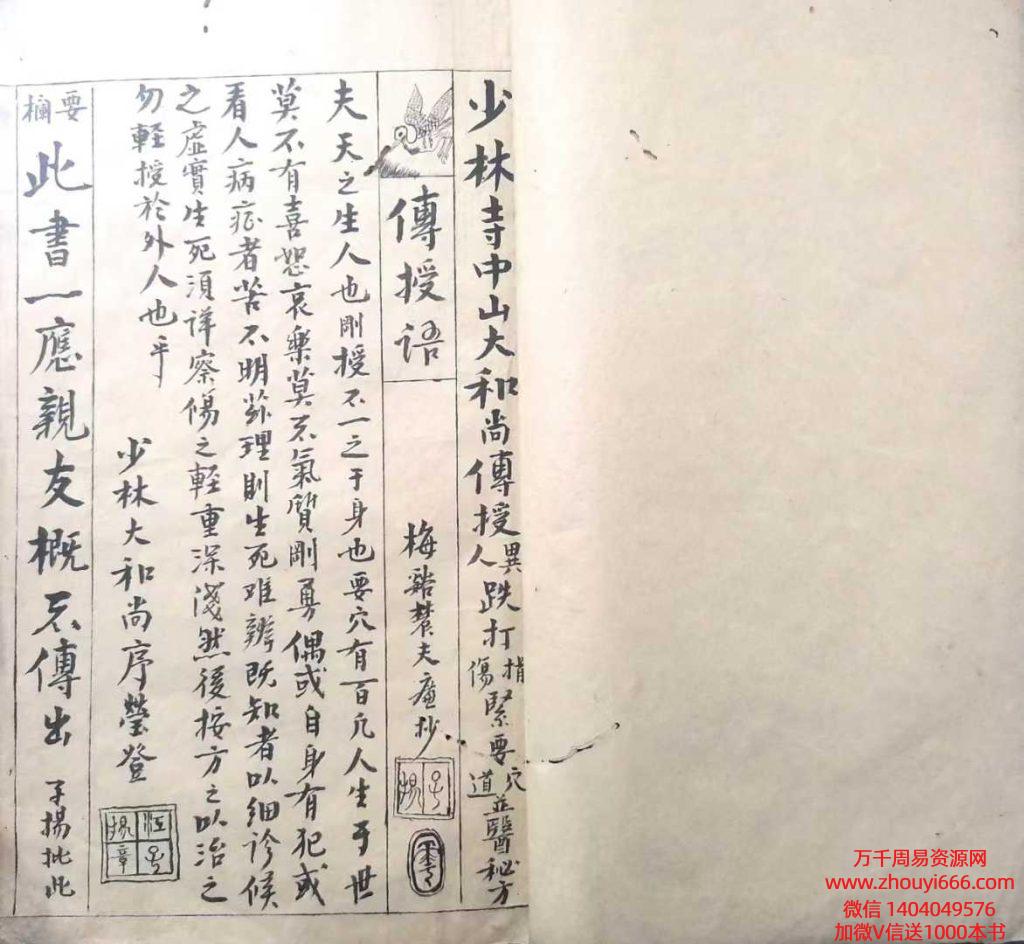 少林寺中山大和尚傳授異人跌打損傷緊要穴道並醫秘方
傳授語
梅谿樵夫庵抄
夫天之生人也剛授不一之于身也要穴有百凡人生于世
莫不有喜怒哀樂莫不氣質剛勇偶或自身有犯或
看人病症者苦不明脉理則生死难辨既知者以細診候
之虛實生死須詳察傷之輕重深淺然後按方之以治之
勿輕授於外人也乎
少林大和尚序瑩登
要欄
此書一應親友概不傳出
子揚批此
万千周易资源网
www.zhouyi666.com
微信 1404049576
加微V信送1000本书